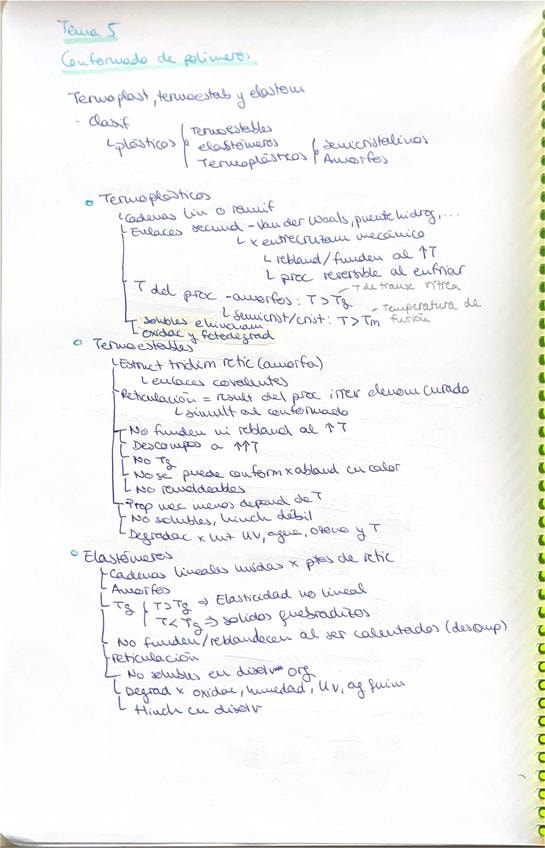 Tema 5
Conformado de polímeros
Termoplast, termoestab y elastom
- Clasif
plásticos
Termoestables
elastómeros
Termoplásticos
semicristalinos
Amorfos
Termoplásticos
Cadenas lin o ramif
Enlaces secund - Van der Waals, puente hidrog,...
x entrecruzam mecánico
rebland/funden al ↑T
proc reversible al enfriar
T del proc - amorfos: T > Tg
T de transic vítrea
semicrist/crist: T > Tm
Temperatura de fusión
solubles e hincham
oxidac y fotodegrad
Termoestables
Estruct tridim retic (amorfa)
enlaces covalentes
Reticulación = result del proc irrev denom curado
simult al conformado
No funden ni rebland al ↑T
Descompos a ↑↑↑T
No Tg
No se puede conform x abland cn calor
No remoldeables
Prop mec menos depend de T
No solubles, hinch débil
Degradac x luz UV, agua, ozono y T
Elastómeros
Cadenas lineales unidas x ptos de retic
Amorfos
Tg
T > Tg ⇒ Elasticidad no lineal
T < Tg ⇒ solidos quebradizos
No funden/reblandecen al ser calentados (descomp)
reticulación
No solubles en disolv org
Degrad x oxidac, humedad, UV, ag quím
Hinch cn disolv